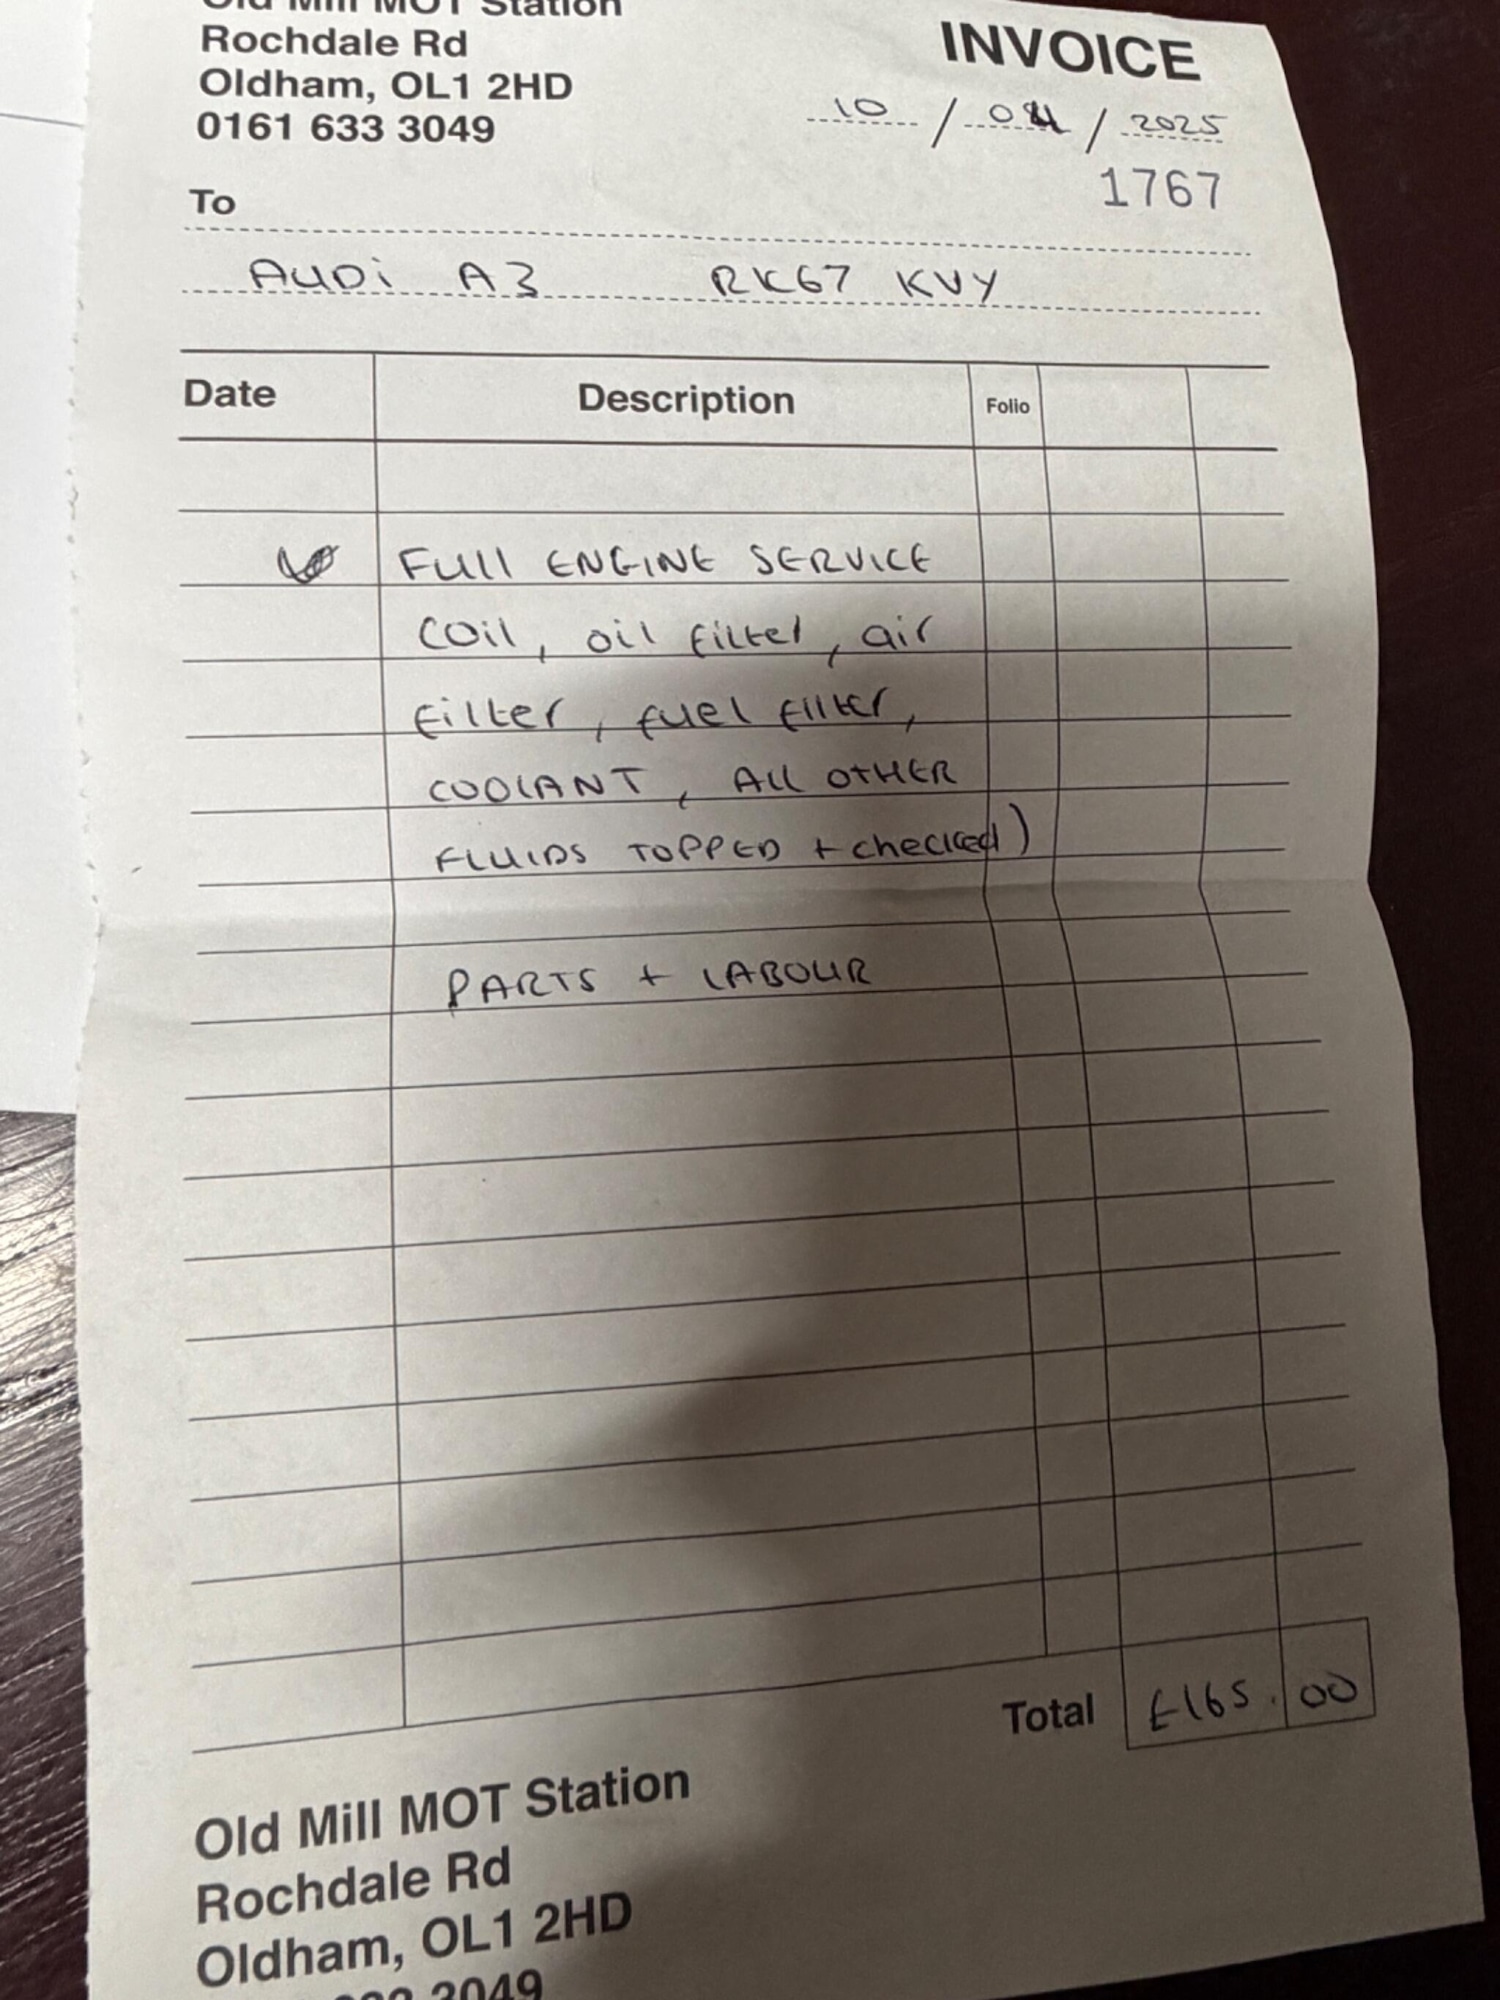 Old Mill MOT Station
Rochdale Rd
Oldham, OL1 2HD
0161 633 3049
INVOICE
10 / 04 / 2025
1767
To
AUDi A3 RK67 KVY
Date Description Folio
FULL ENGINE SERVICE
(oil, oil filter, air
filter, fuel filter,
COOLANT, ALL OTHER
FLUIDS TOPPED + checked)
PARTS + LABOUR
Total £165.00
Old Mill MOT Station
Rochdale Rd
Oldham, OL1 2HD
3049